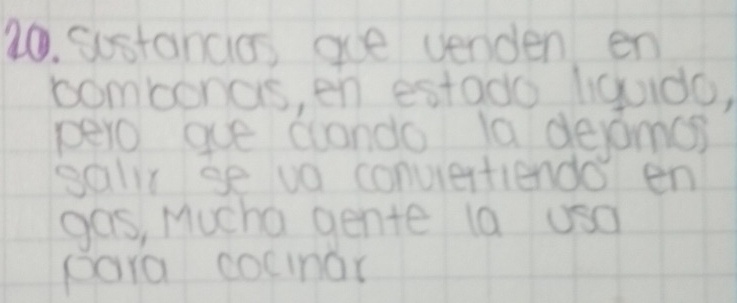 20. Sustancias que venden en
bombonas, en estado liquido,
pero que cuando la dejamos
salir se va conviertiendo en
gas, Mucha gente la usa
para cocinar